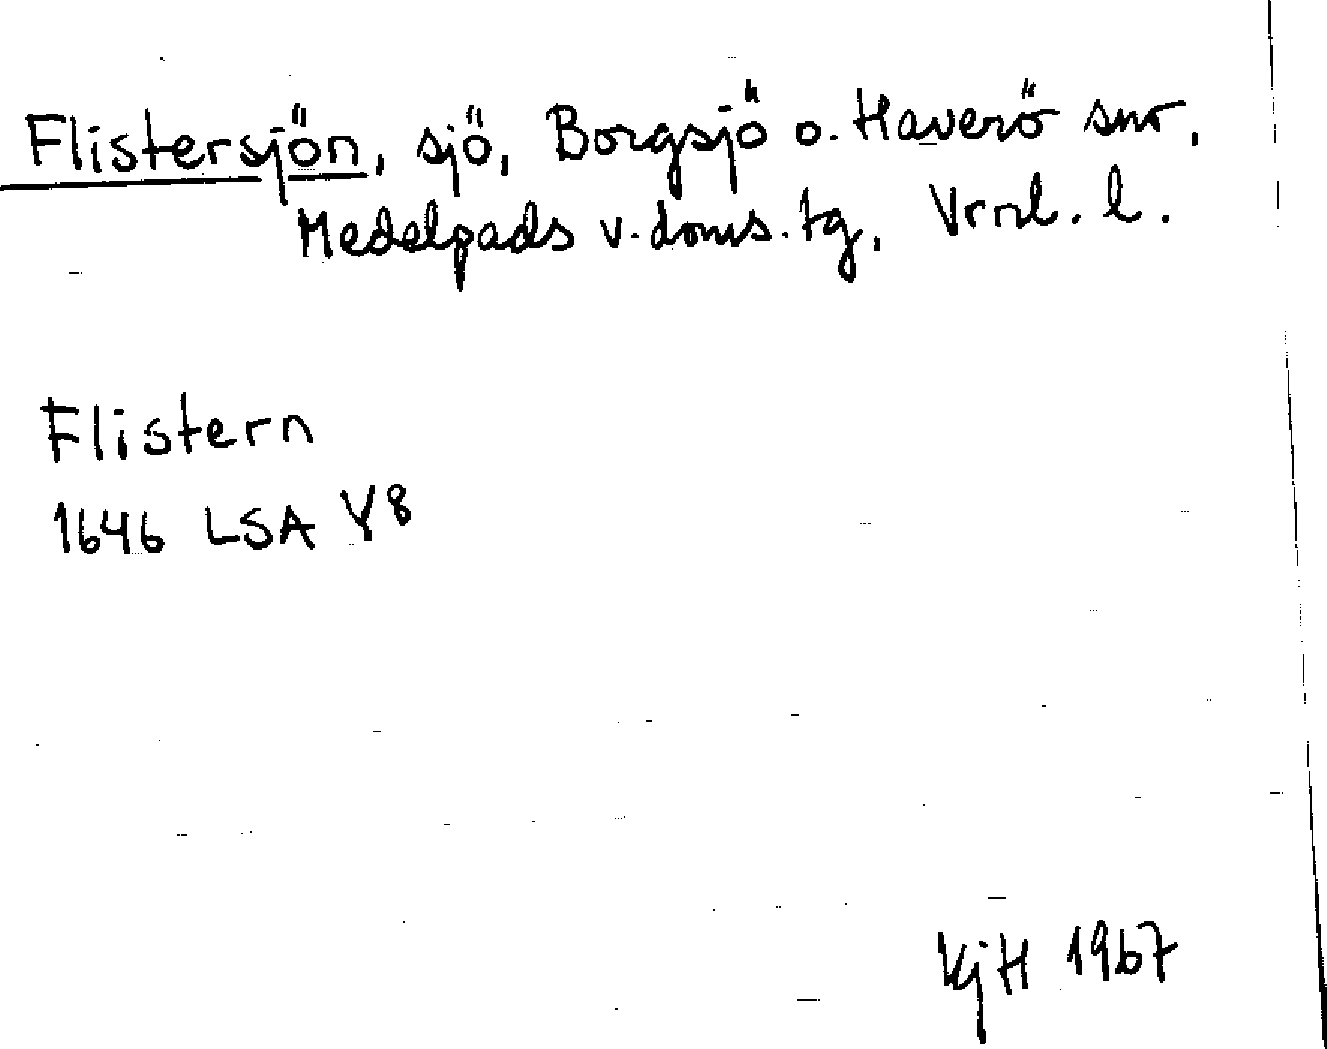 Flistersjön, sjö, Borgsjö o. Haverö snr,
Medelpads v. doms. tg, Vrnl. l.
Flistern
1646 LSA Y8
KjH 1967